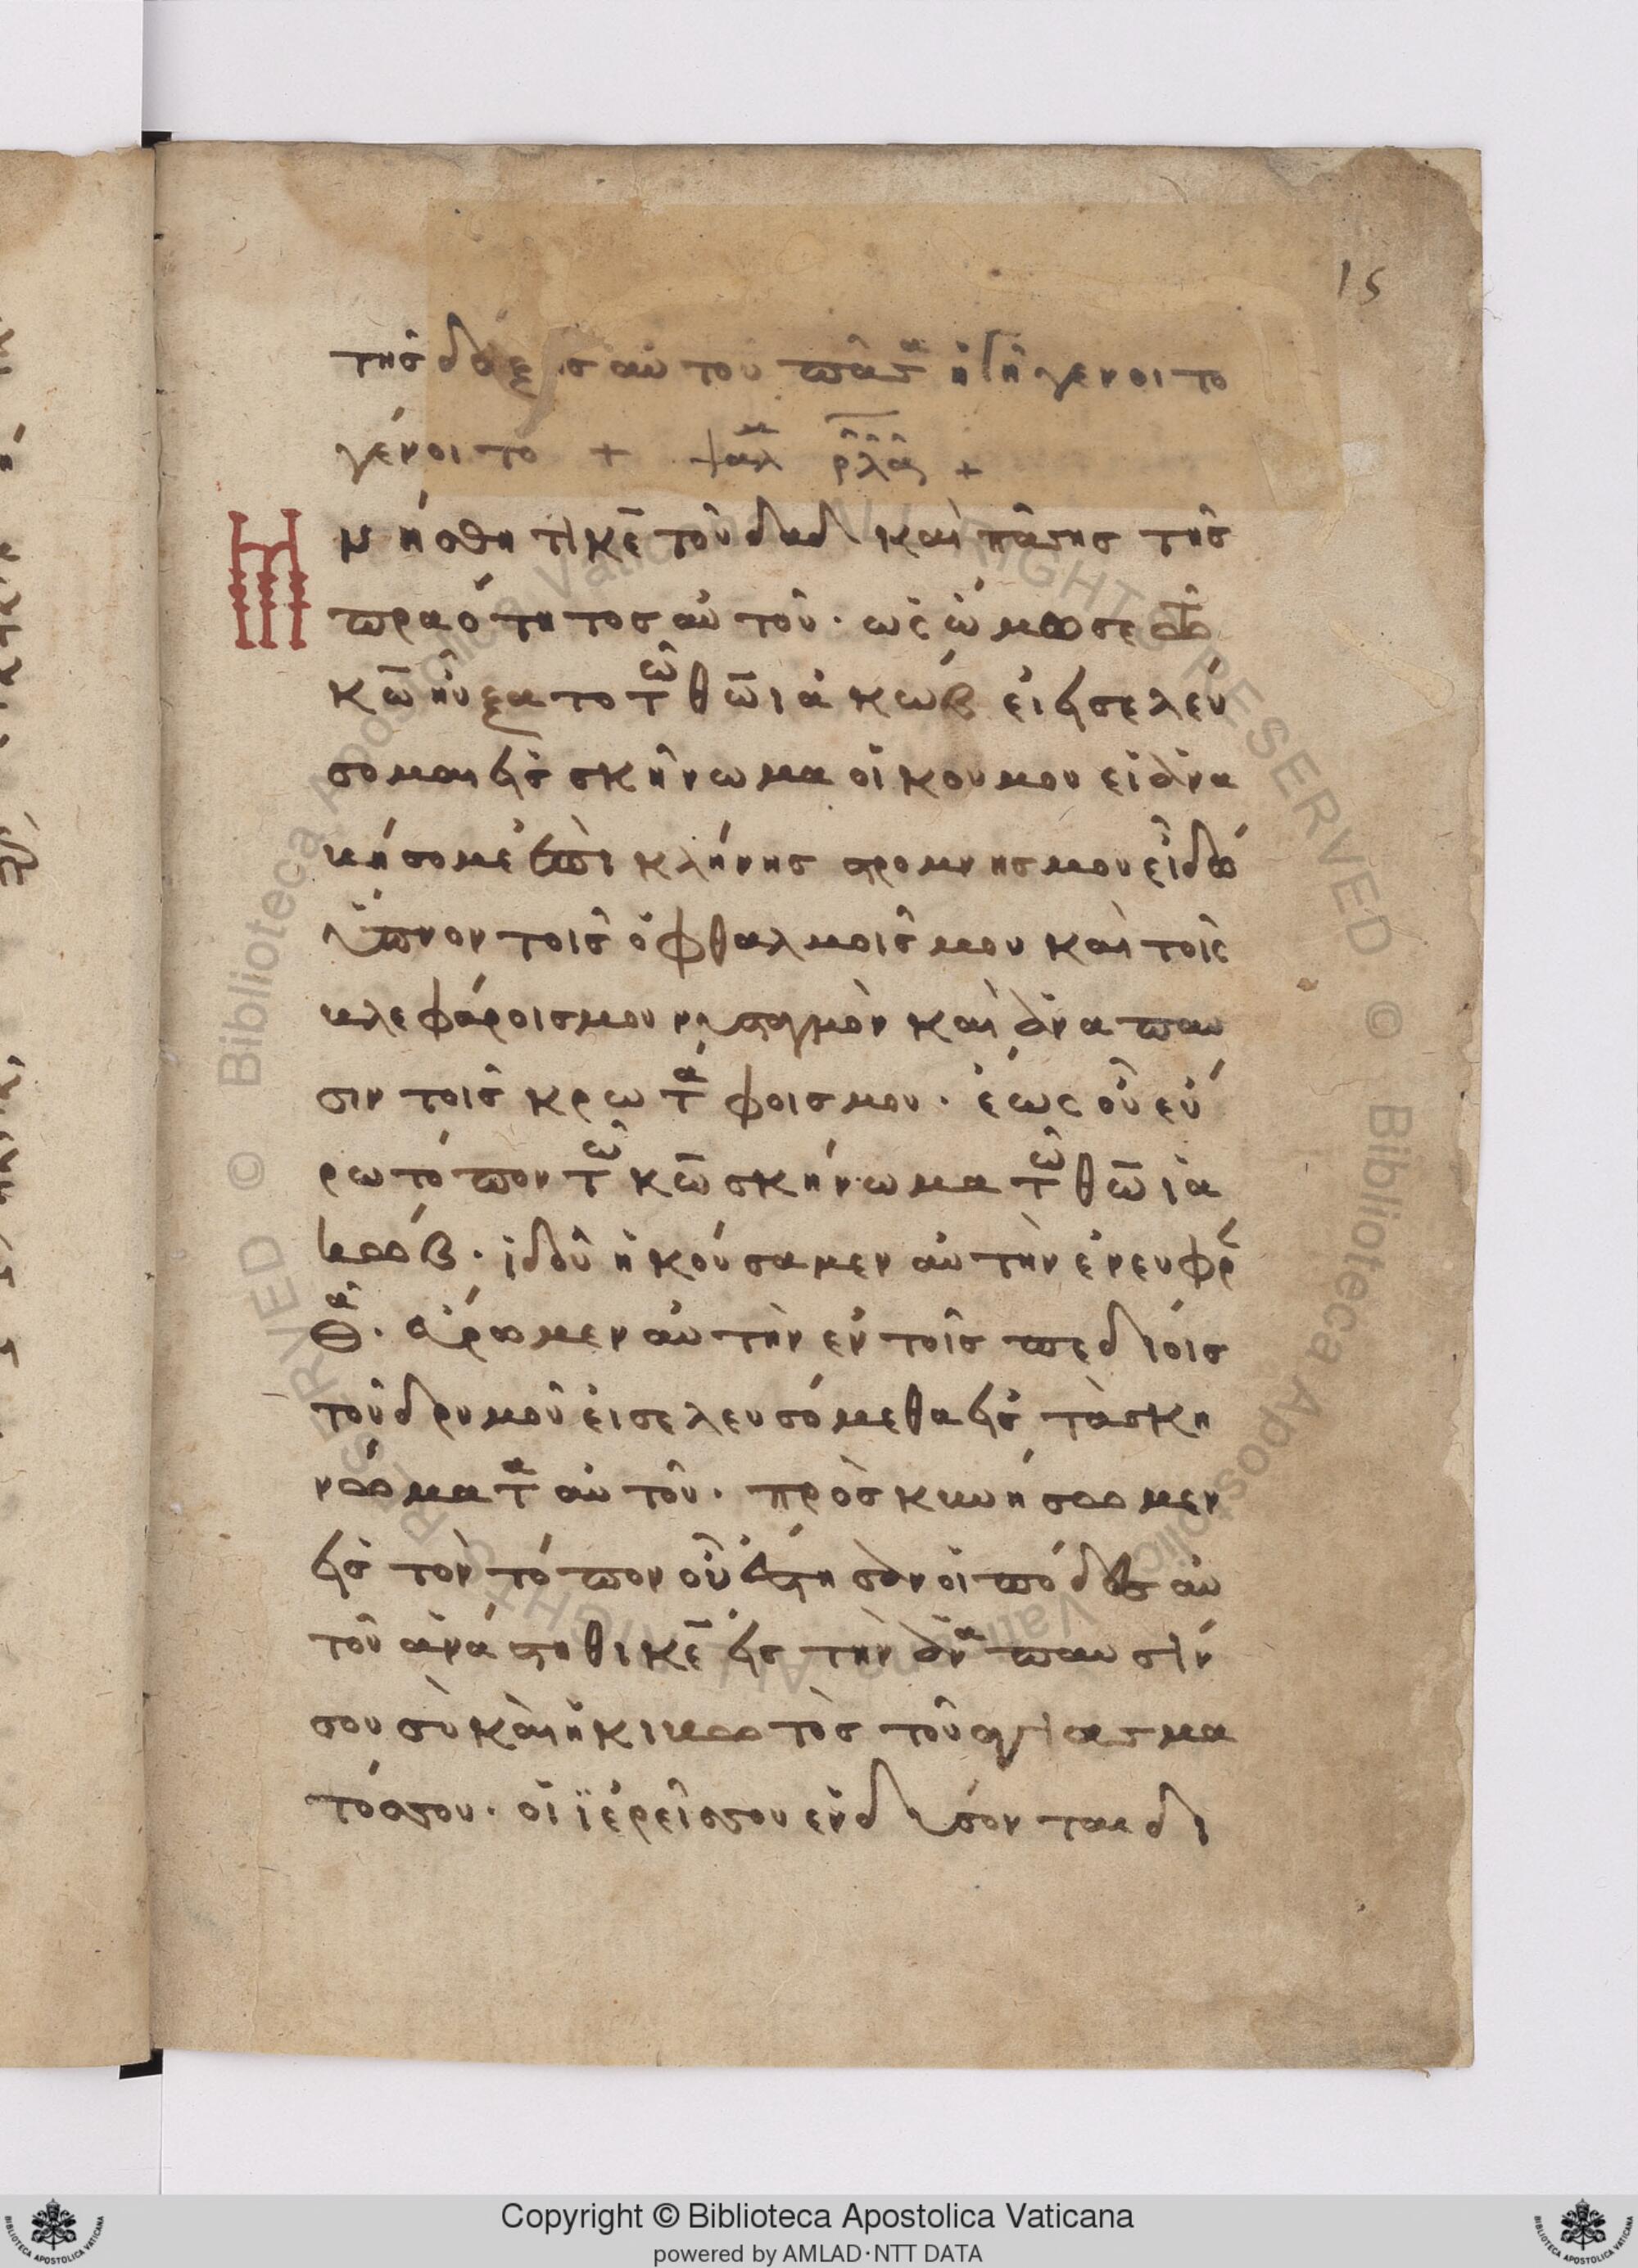 15
τῆς δόξης αὐτοῦ πᾶσα ἡ γῆ γένοιτο
γένοιτο + ψαλ ρλα +
Μνήσθητι κε τοῦ δαδ καὶ πάσης τῆς
πραότητος αὐτοῦ · ὡς ὤμοσε τῶ
κω ηὔξατο τῶ θω ἰακώβ εἰ εἰσελεύ
σομαι εἰς σκήνωμα οἴκου μου εἰ ἀνα
βήσομε ἐπὶ κλήνης στρομνης μου εἰ δώσω
ὕπνον τοῖς ὀφθαλμοῖς μου καὶ τοῖς
βλεφάροις μου νυσταγμὸν καὶ ἀνάπαυ
σιν τοῖς κρωτάφοις μου · ἕως οὗ εὕ
ρω τόπον τῶ κω σκήνωμα τῶ θω ἰα
κώβ · ἰδοῦ ἠκούσαμεν αὐτὴν ἐν ευφρ
θᾶ · εὕρωμεν αὐτὴν ἐν τοῖς πεδίοις
τοῦ δρυμοῦ εἰσελευσόμεθα εἰς τὰ σκη
νώματα αὐτοῦ · πρὸσκυνήσωμεν
εἰς τὸν τόπον οὗ ἔστησαν οἱ πόδες αὐ
τοῦ ἀνάστηθι κε εἰς τὴν ἀνάπαυσίν
σου σὺ καὶ ἡ κιβωτὸς τοῦ ἁγιάσμα
τός σου · οἱ ἱερεῖς σου ἐνδύσονται δι
Copyright © Biblioteca Apostolica Vaticana
powered by AMLAD·NTT DATA